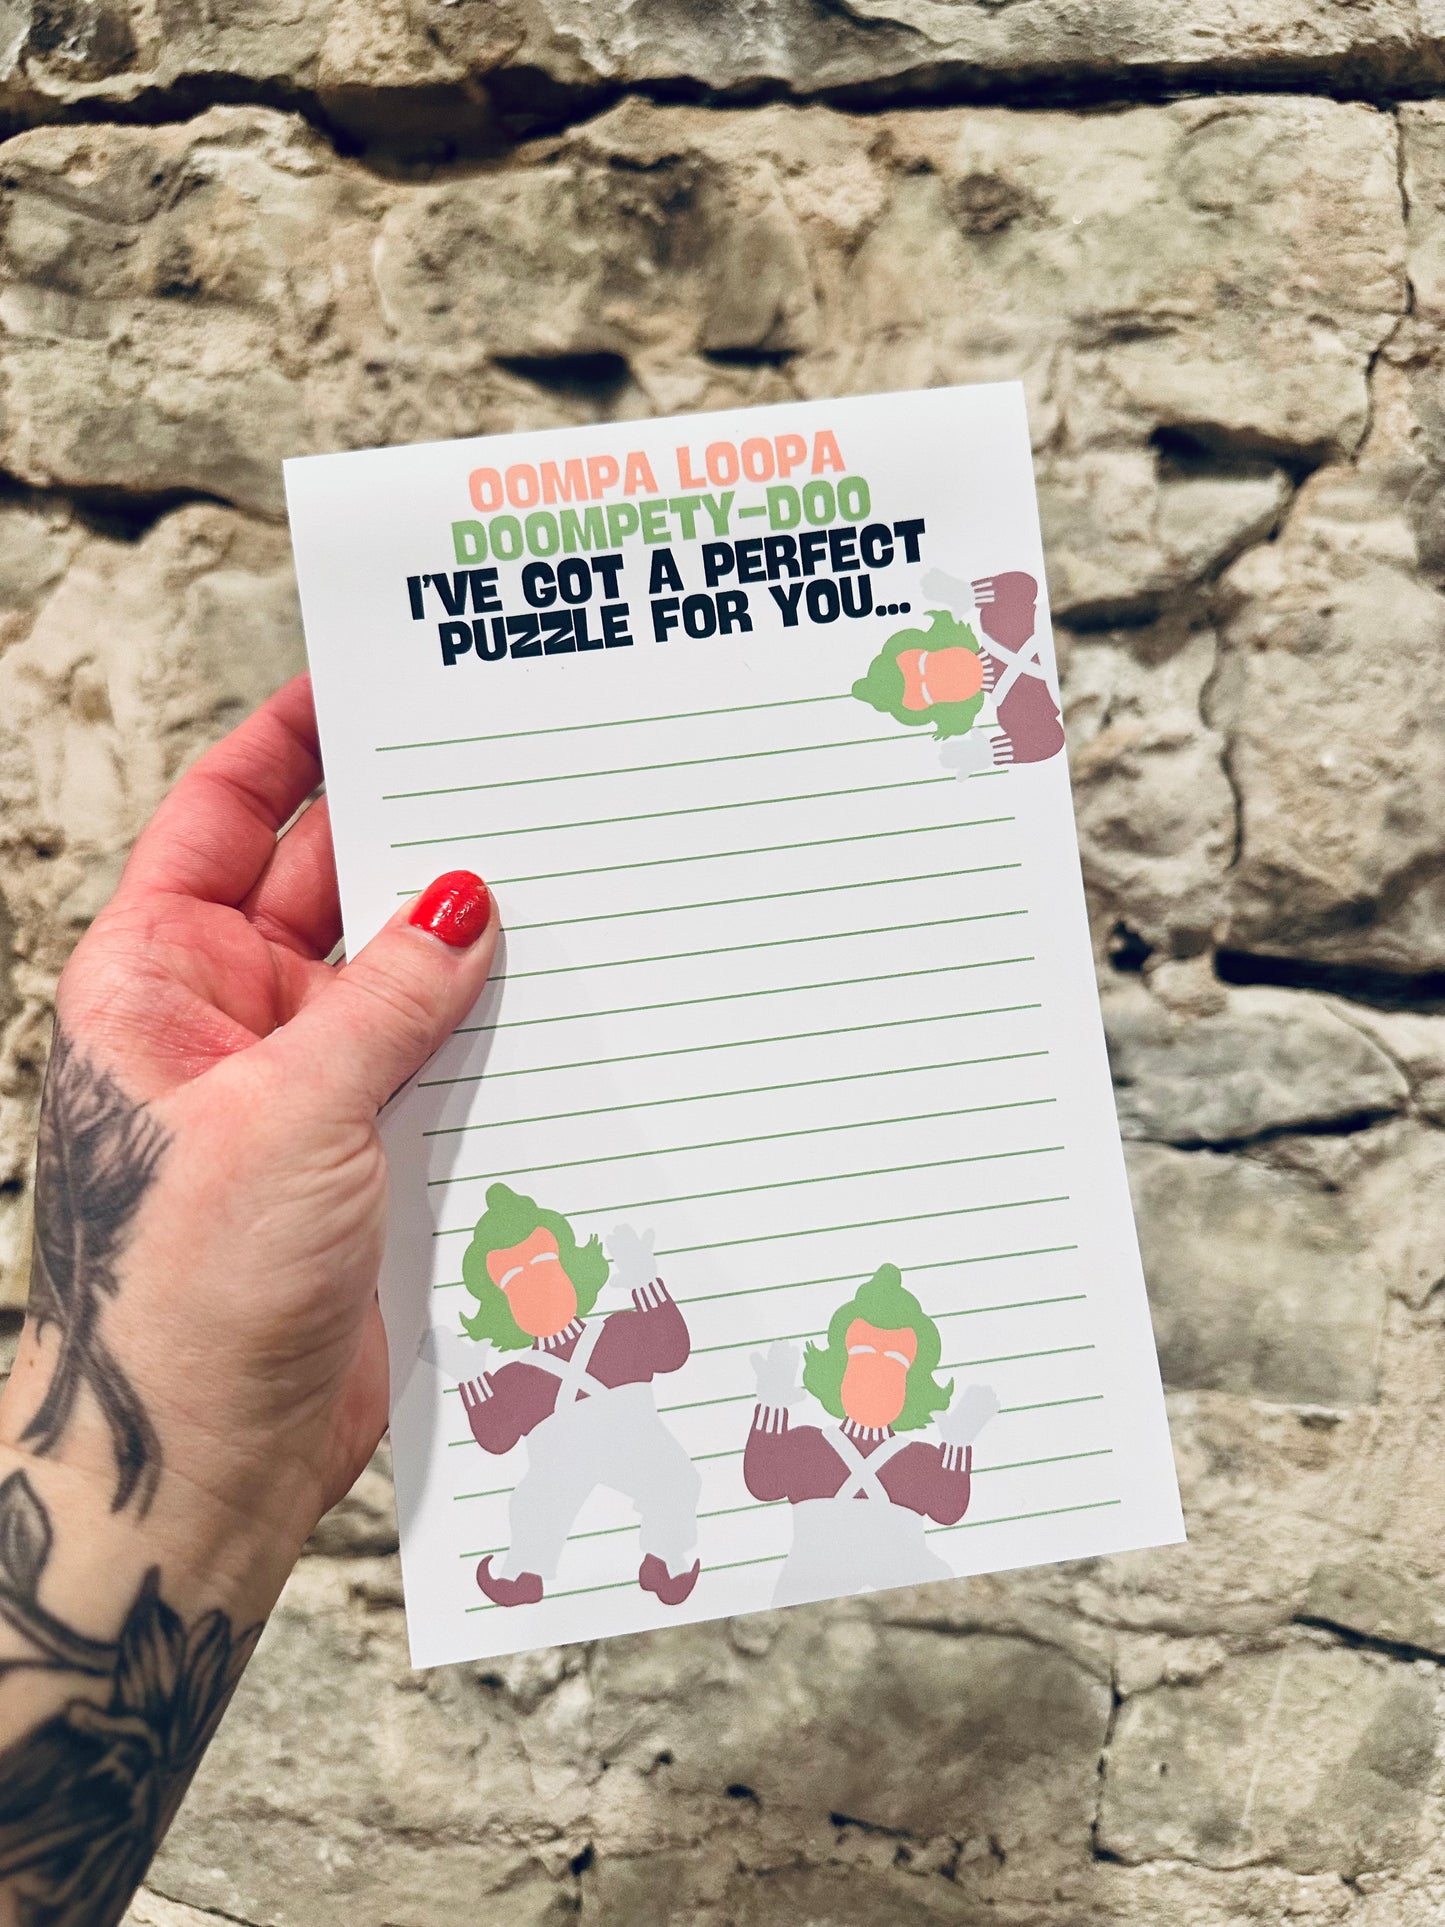 OOMPA LOOPA
DOOMPETY-DOO
I'VE GOT A PERFECT
PUZZLE FOR YOU...